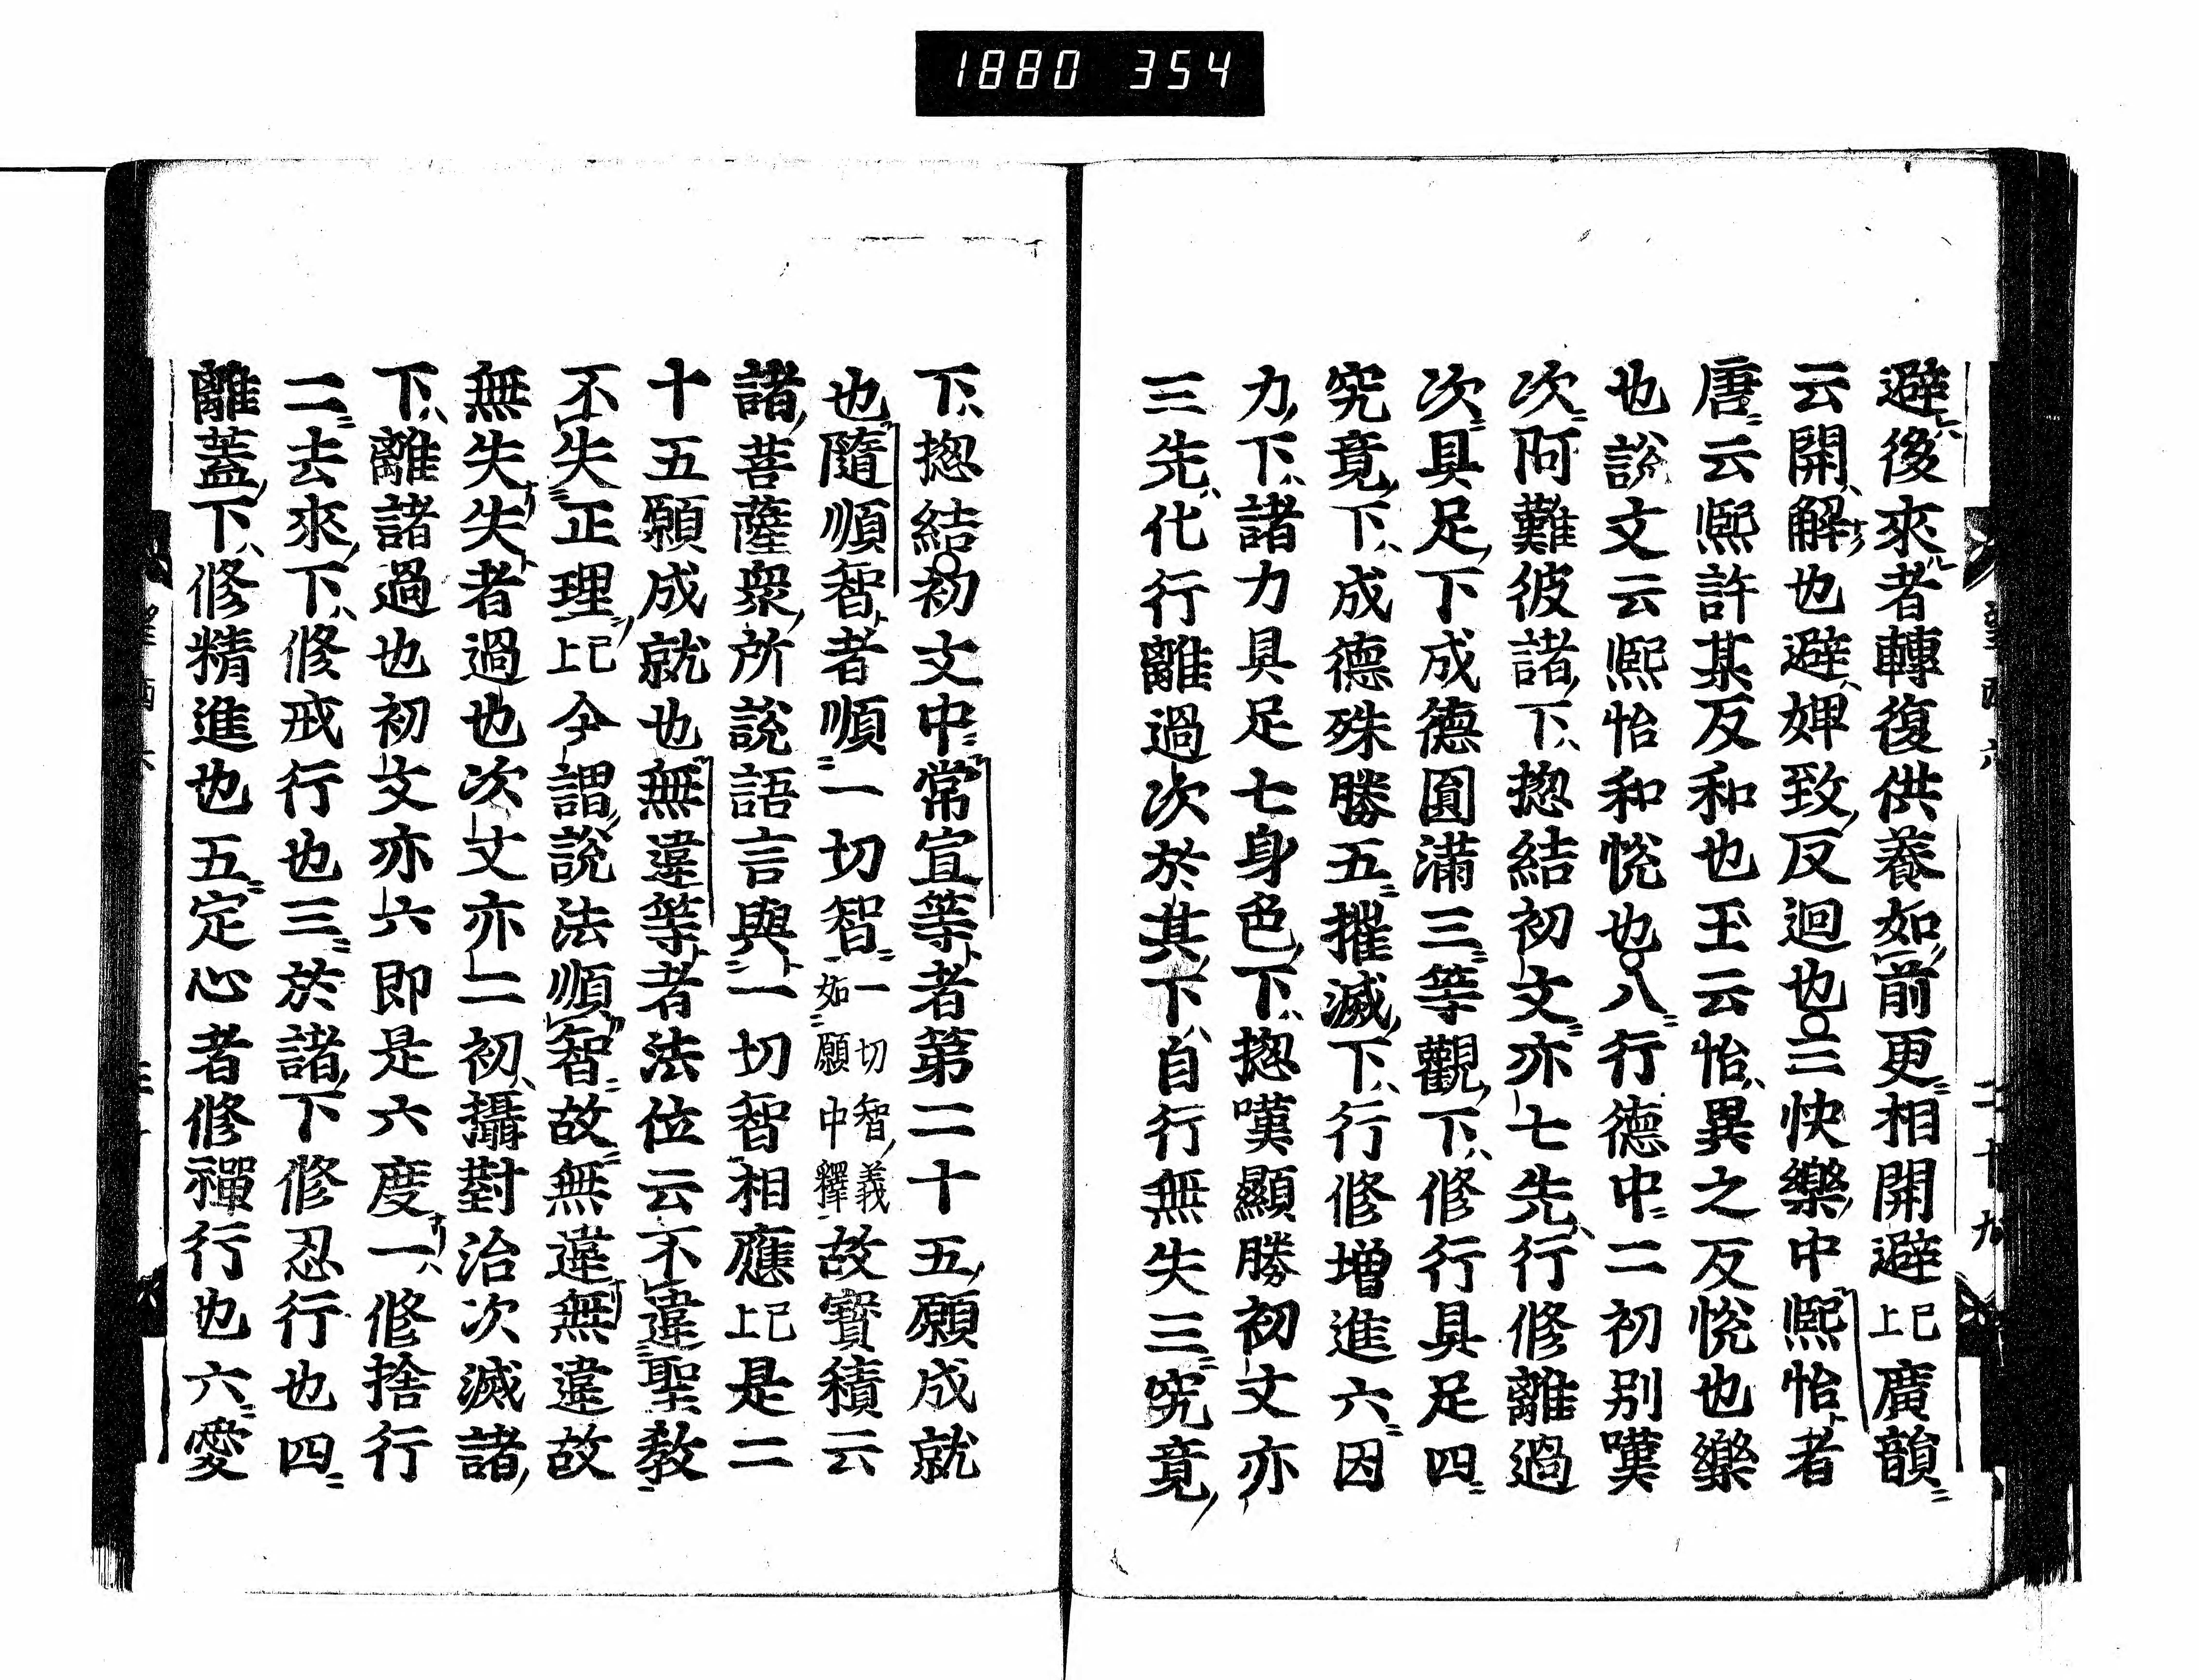 1880 354
避後來者轉復供養如前更相開避已上廣韻
云開解也避婢致反迴也○三快樂中熈怡者
唐云熈許某反和也玉云怡異之反悅也樂
也說文云熈怡和悅也○八行德中二初別嘆
次阿難彼諸下揔結初文亦七先行修離過
次具足下成德圓滿三等觀下修行具足四
究竟下成德殊勝五摧滅下行修增進六因
力下諸力具足七身色下揔嘆顯勝初文亦
三先化行離過次於其下自行無失三究竟
下揔結○初文中常宣等者第二十五願成就
也隨順智者順一切智一切智義如願中釋故寶積云
諸菩薩衆所說語言與一切智相應已上是二
十五願成就也無違等者法位云不違聖教
不失正理已上今謂說法順智故無違無違故
無失失者過也次文亦二初攝對治次滅諸
下離諸過也初文亦六即是六度一修捨行
二去來下修戒行也三於諸下修忍行也四
離蓋下修精進也五定心者修禪行也六愛
二十九